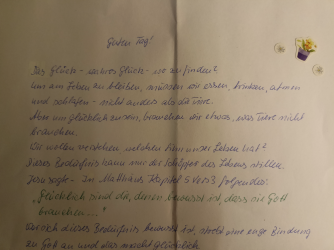 Guten Tag!
Das Glück - wahres Glück - wo zu finden?
Um am Leben zu bleiben, müssen wir essen, trinken, atmen
und schlafen - nicht anders als die Tiere.
Aber um glücklich zu sein, brauchen wir etwas, was Tiere nicht
brauchen.
Wir wollen verstehen, welchen Sinn unser Leben hat?
Dieses Bedürfnis kann nur der Schöpfer des Lebens stillen.
Jesus sagte - In Matthäus, Kapitel 5 Vers 3 folgendes:
"Glücklich sind die, denen bewusst ist, dass sie Gott
brauchen..."
dieses Bedürfnis bewusst ist, strebt eine enge Bindung
zu Gott an und das macht glücklich.